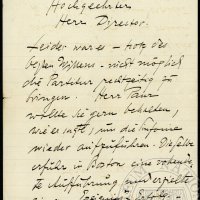 Hochgeehrter
Herr Director.
Leider war es – trotz des
besten Willens – nicht möglich
die Partitur rechtzeitig zu
bringen. Herr Paur
wollte sie gern behalten,
wie es heißt, um die Symfonie
wieder aufzuführen. Dieselbe
erfuhr in Boston eine
Aufführung und erzielte